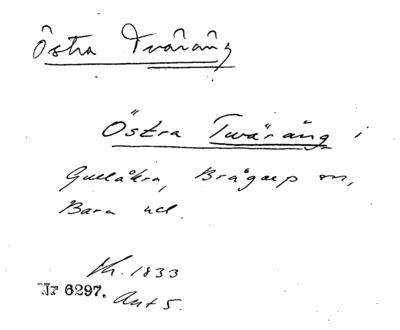 Östra Tväräng
Östra Twäräng i
Gullåkra, Brågarp sn,
Bara hd.
Sk. 1833
Nr 6297. Akt 5.